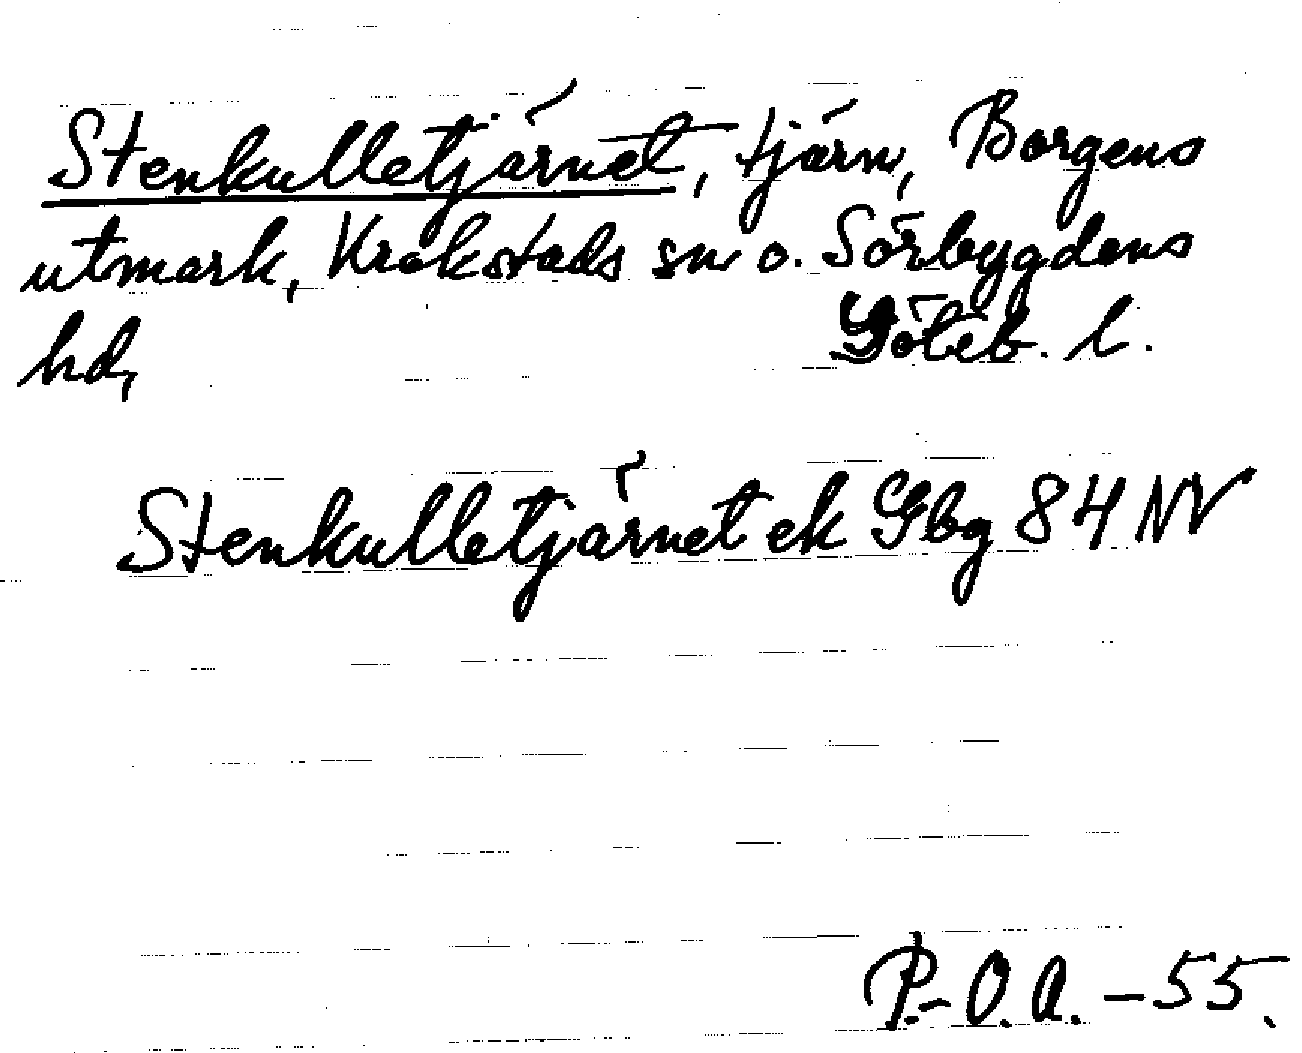 Stenkulletjärnet, tjärn, Borgens
utmark, Krokstads sn o. Sörbygdens
hd, Göteb. l.
Stenkulletjärnet ek Gbg 84 NV
P.-O. A. - 55.